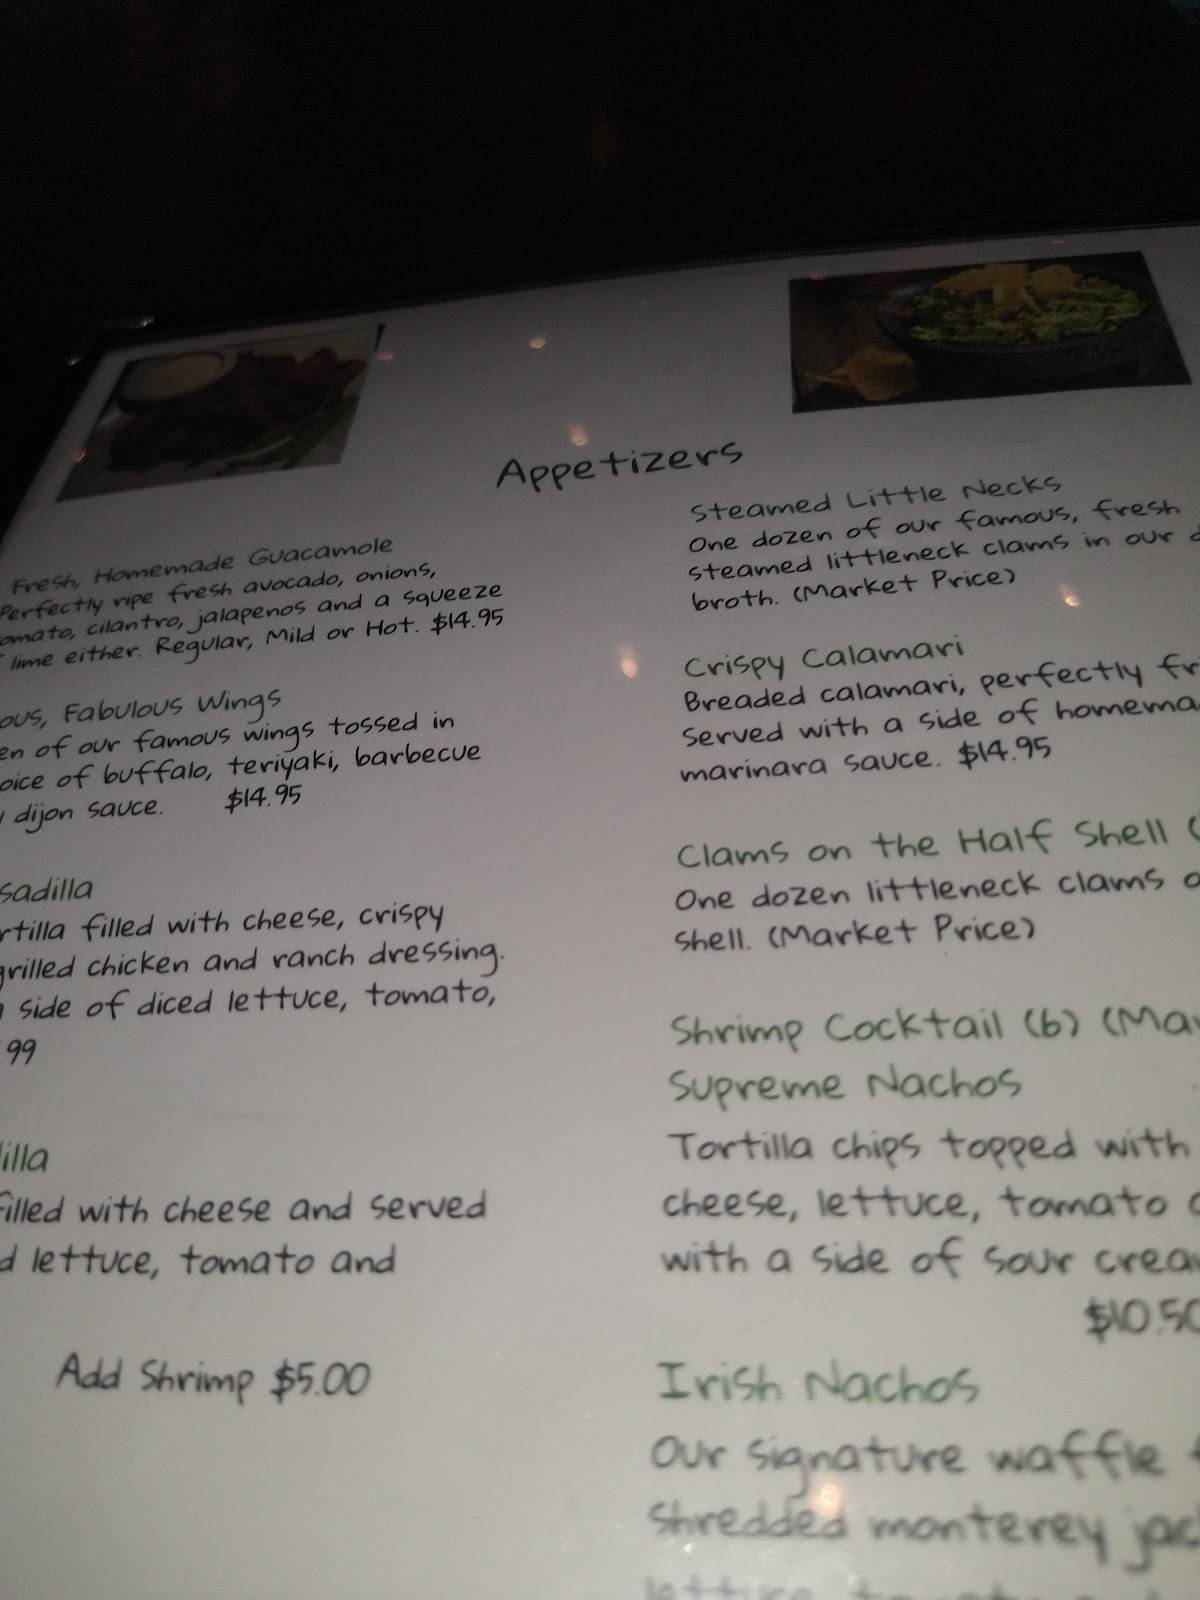 Appetizers
Fresh, Homemade Guacamole
Perfectly ripe fresh avocado, onions,
cilantro, jalapenos and a squeeze
lime either. Regular, Mild or Hot. $14.95
Fabulous Wings
of our famous wings tossed in
of buffalo, teriyaki, barbecue
dijon sauce. $14.95
filled with cheese, crispy
grilled chicken and ranch dressing.
side of diced lettuce, tomato,
99
filled with cheese and served
lettuce, tomato and
Add Shrimp $5.00
Steamed Little Necks
One dozen of our famous, fresh
steamed littleneck clams in our
broth. (Market Price)
Crispy Calamari
Breaded calamari, perfectly
Served with a side of
marinara sauce. $14.95
Clams on the Half Shell
One dozen littleneck clams
shell. (Market Price)
Shrimp Cocktail (6)
Supreme Nachos
Tortilla chips topped with
cheese, lettuce, tomato
with a side of sour
$10.50
Irish Nachos
Our signature waffle
shredded monterey